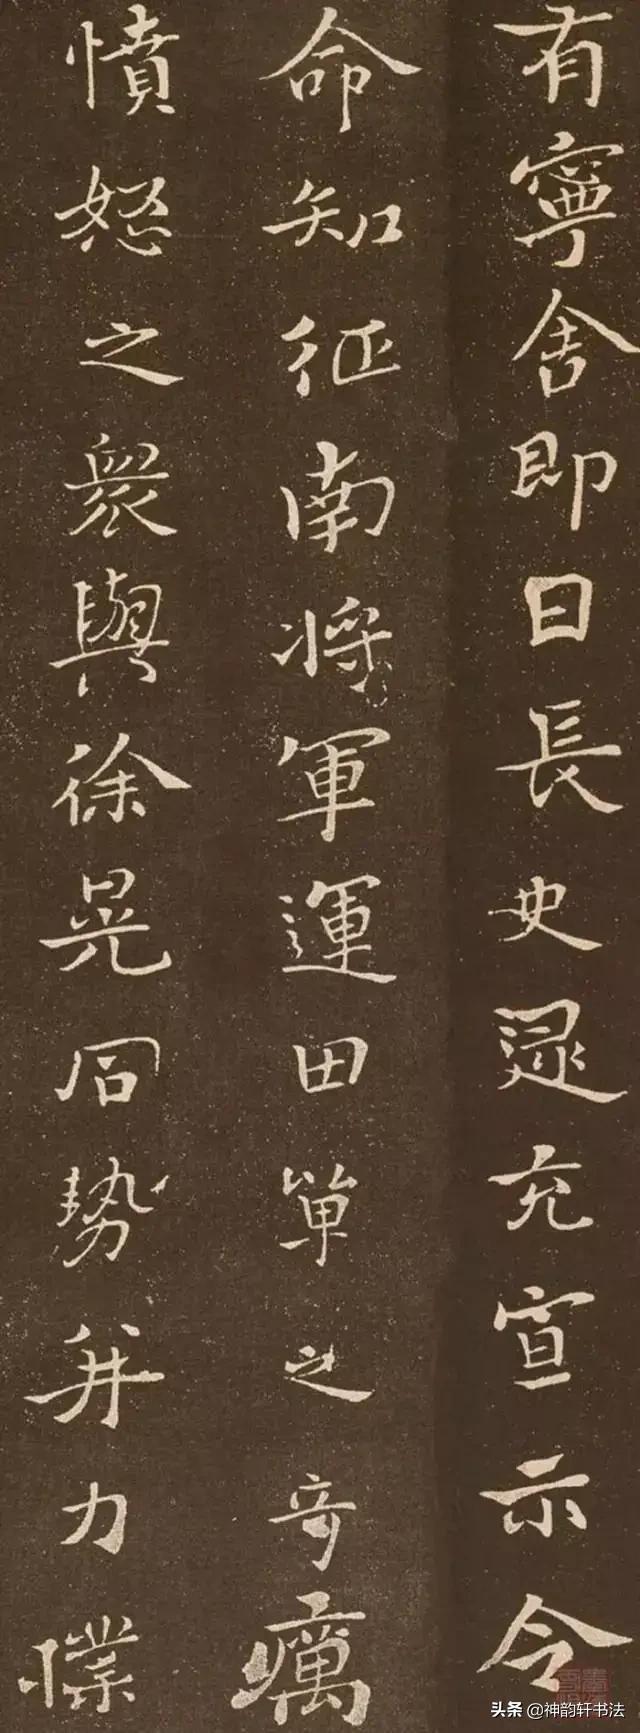 有寧舍即日長史逯充宣示令
命知征南將軍運田單之奇厲
憤怒之眾與徐晃同勢并力撲
头条 @神韵轩书法